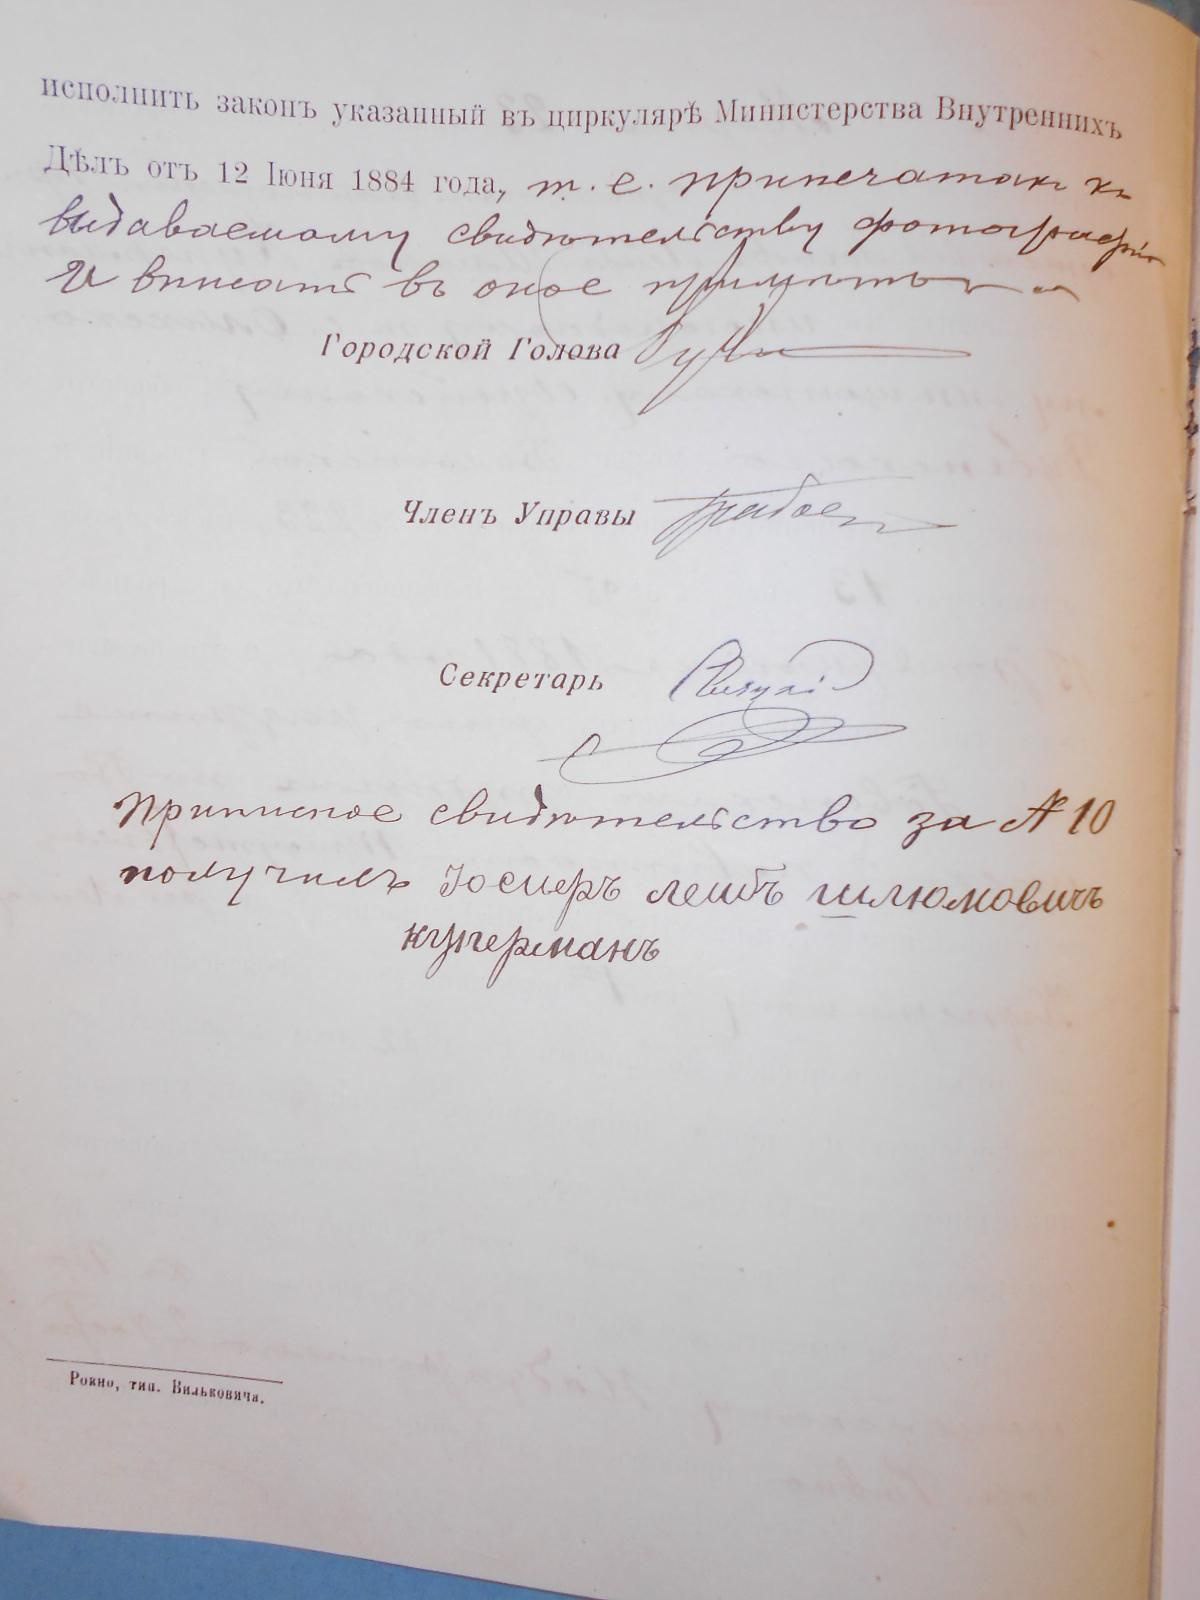 исполнить законъ указанный въ циркулярѣ Министерства Внутреннихъ
Дѣлъ отъ 12 Іюня 1884 года, т. е. припечатать къ
выдаваемому свидѣтельству фотографію
и вписать въ оное примѣты.
Городской Голова
Членъ Управы
Секретарь
Приписное свидѣтельство за № 10
получилъ Іосиеръ лейбъ шлюмовичъ
куперманъ
Ровно, тип. Вильковича.